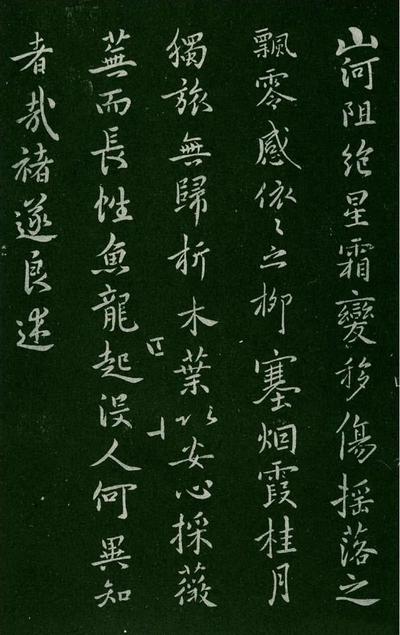 山河阻絶星霜變移傷搖落之
飄零感依〻之柳塞烟霞桂月
獨旅無歸折木葉以安心採薇
蕪而長性魚龍起没人何異知
者哉褚遂良述